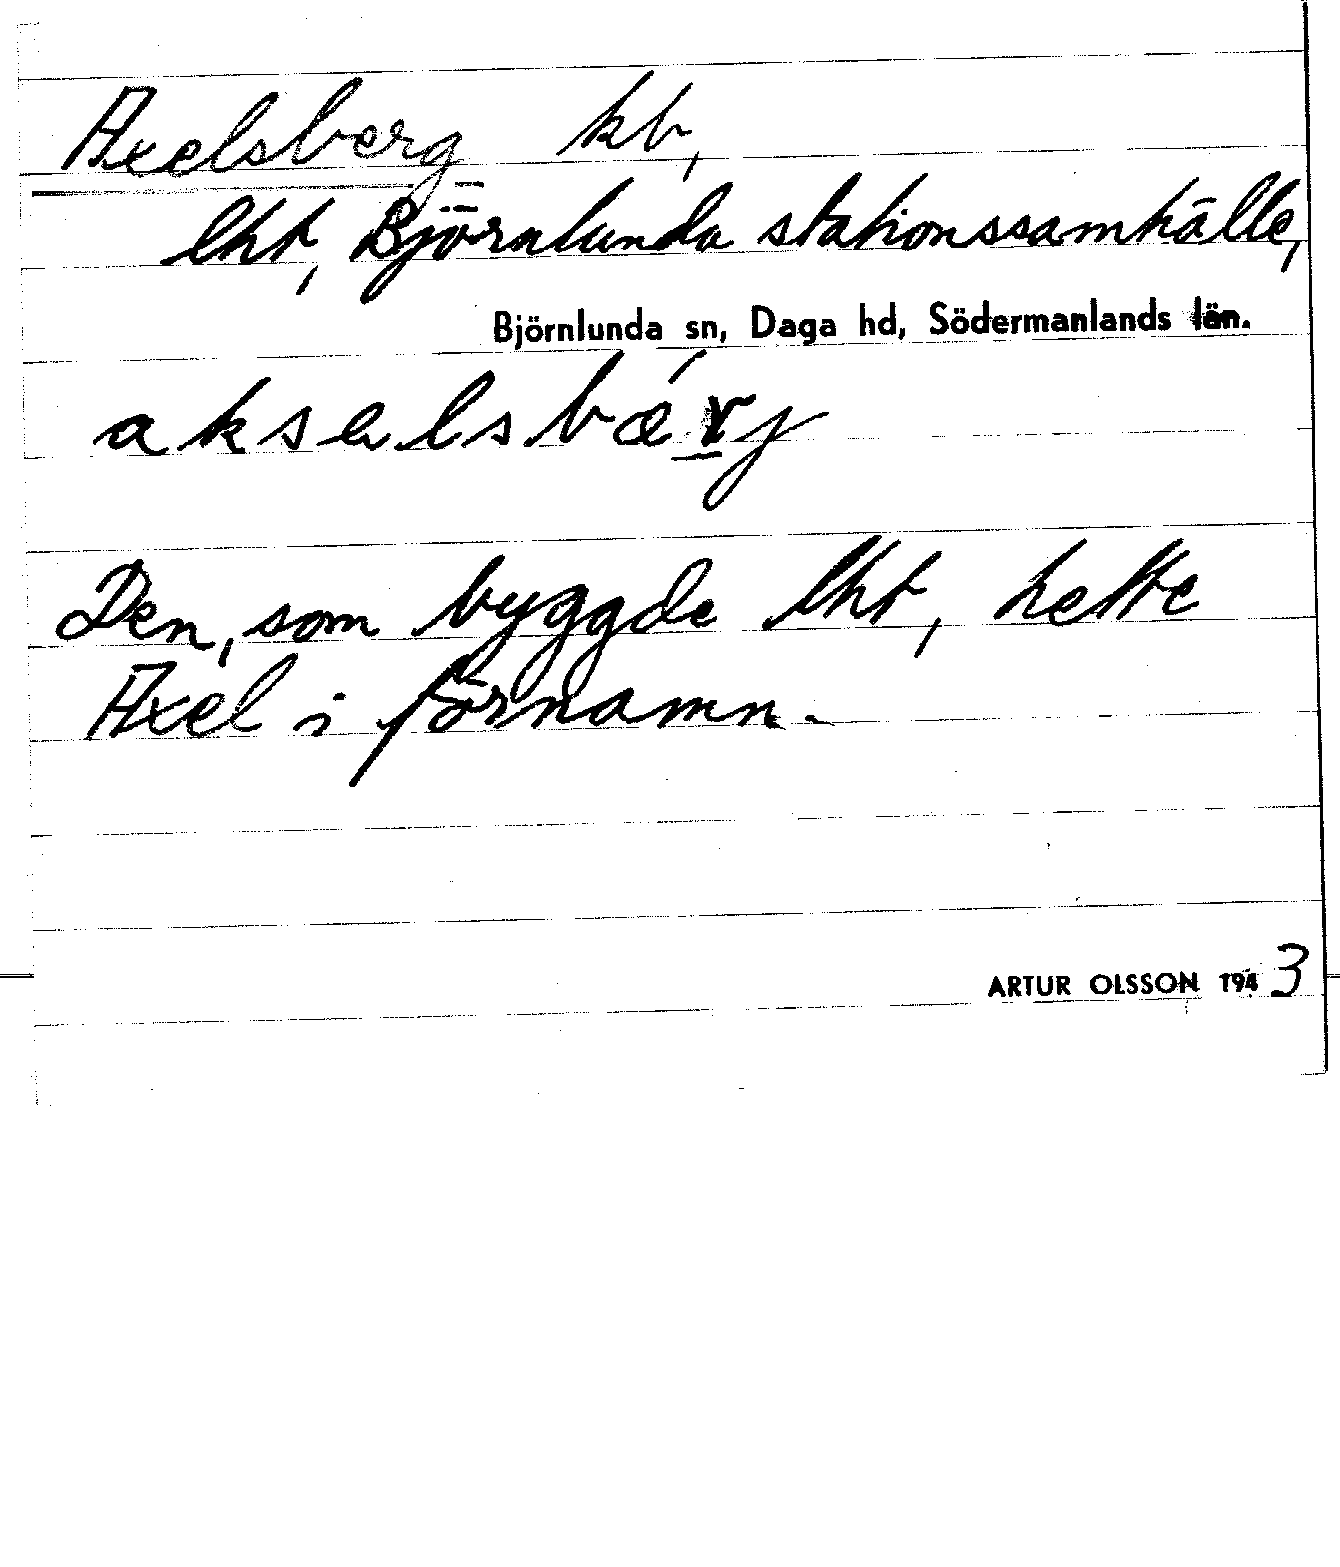 Axelsberg kb,
lht, Björnlunda stationssamhälle,
Björnlunda sn, Daga hd, Södermanlands län.
akselsbærj
Den, som byggde lht, hette
Axel i förnamn.
ARTUR OLSSON 1943